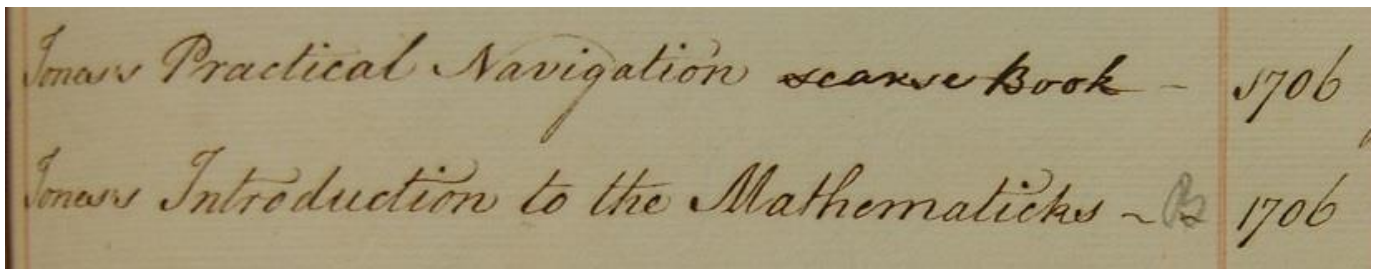 Jones's Practical Navigation scarse Book - 1706
Jones's Introduction to the Mathematicks - B 1706